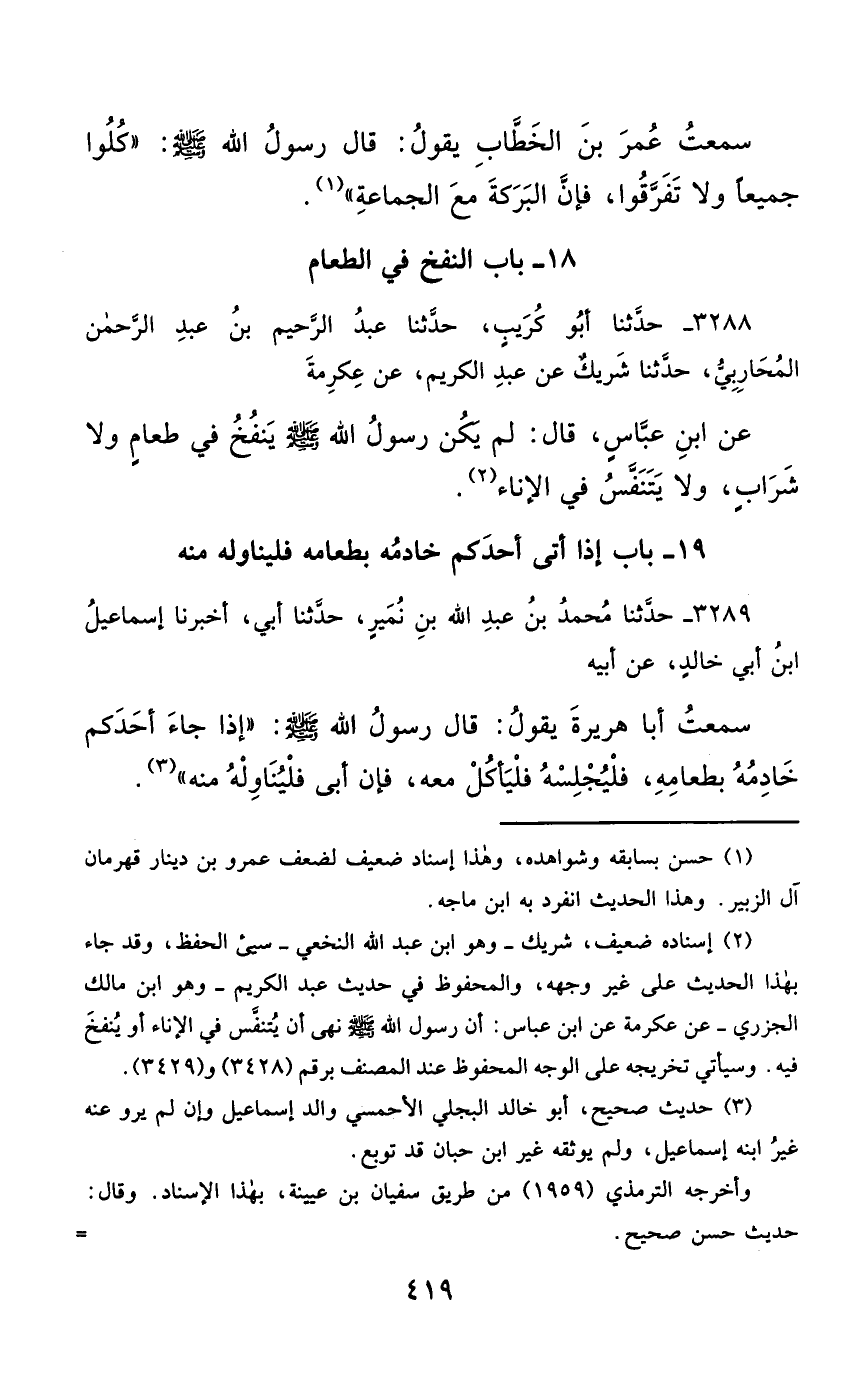 سمعتُ عُمرَ بنَ الخَطَّابِ يقولُ: قال رسولُ الله ﷺ: «كُلُوا
جميعاً ولا تَفَرَّقُوا، فإنَّ البَرَكةَ معَ الجماعةِ»(١).
١٨ـ باب النفخ في الطعام
٣٢٨٨ـ حدَّثنا أبُو كُرَيبٍ، حدَّثنا عبدُ الرَّحيم بنُ عبدِ الرَّحمٰن
المُحَارِبِيُّ، حدَّثنا شَريكٌ عن عبدِ الكريم، عن عِكرِمةَ
عن ابنِ عبَّاسٍ، قال: لم يَكُن رسولُ الله ﷺ يَنفُخُ في طعامٍ ولا
شَرَابٍ، ولا يَتَنَفَّسُ في الإناء(٢).
١٩ـ باب إذا أتى أحدَكم خادمُه بطعامه فليناوله منه
٣٢٨٩ـ حدَّثنا مُحمدُ بنُ عبدِ الله بنِ نُمَيرٍ، حدَّثنا أبي، أخبرنا إسماعيلُ
ابنُ أبي خالدٍ، عن أبيه
سمعتُ أبا هريرةَ يقولُ: قال رسولُ الله ﷺ: «إذا جاءَ أحَدَكم
خَادِمُهُ بطعامِهِ، فلْيُجْلِسْهُ فليَأكُلْ معه، فإن أبى فلْيُنَاوِلْهُ منه»(٣).
(١) حسن بسابقه وشواهده، وهٰذا إسناد ضعيف لضعف عمرو بن دينار قهرمان
آل الزبير. وهذا الحديث انفرد به ابن ماجه.
(٢) إسناده ضعيف، شريك ـ وهو ابن عبد الله النخعي ـ سيئ الحفظ، وقد جاء
بهٰذا الحديث على غير وجهه، والمحفوظ في حديث عبد الكريم ـ وهو ابن مالك
الجزري ـ عن عكرمة عن ابن عباس: أن رسول الله ﷺ نهى أن يُتنفَّس في الإناء أو يُنفخَ
فيه. وسيأتي تخريجه على الوجه المحفوظ عند المصنف برقم (٣٤٢٨) و(٣٤٢٩).
(٣) حديث صحيح، أبو خالد البجلي الأحمسي والد إسماعيل وإن لم يرو عنه
غيرُ ابنه إسماعيل، ولم يوثقه غير ابن حبان قد توبع.
وأخرجه الترمذي (١٩٥٩) من طريق سفيان بن عيينة، بهٰذا الإسناد. وقال:
حديث حسن صحيح. =
٤١٩